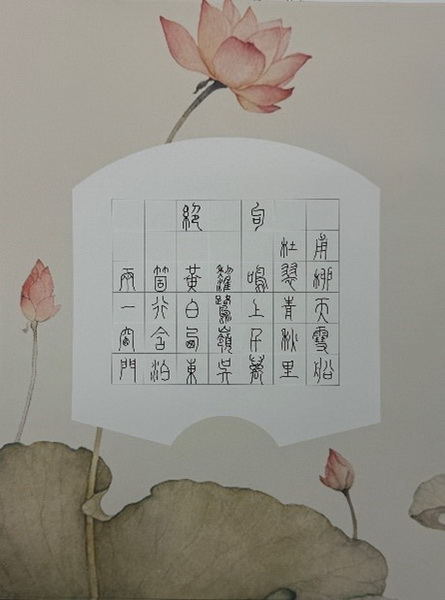 絕句
杜甫
兩箇黃鸝鳴翠柳
一行白鷺上青天
窗含西嶺千秋雪
門泊東吳萬里船